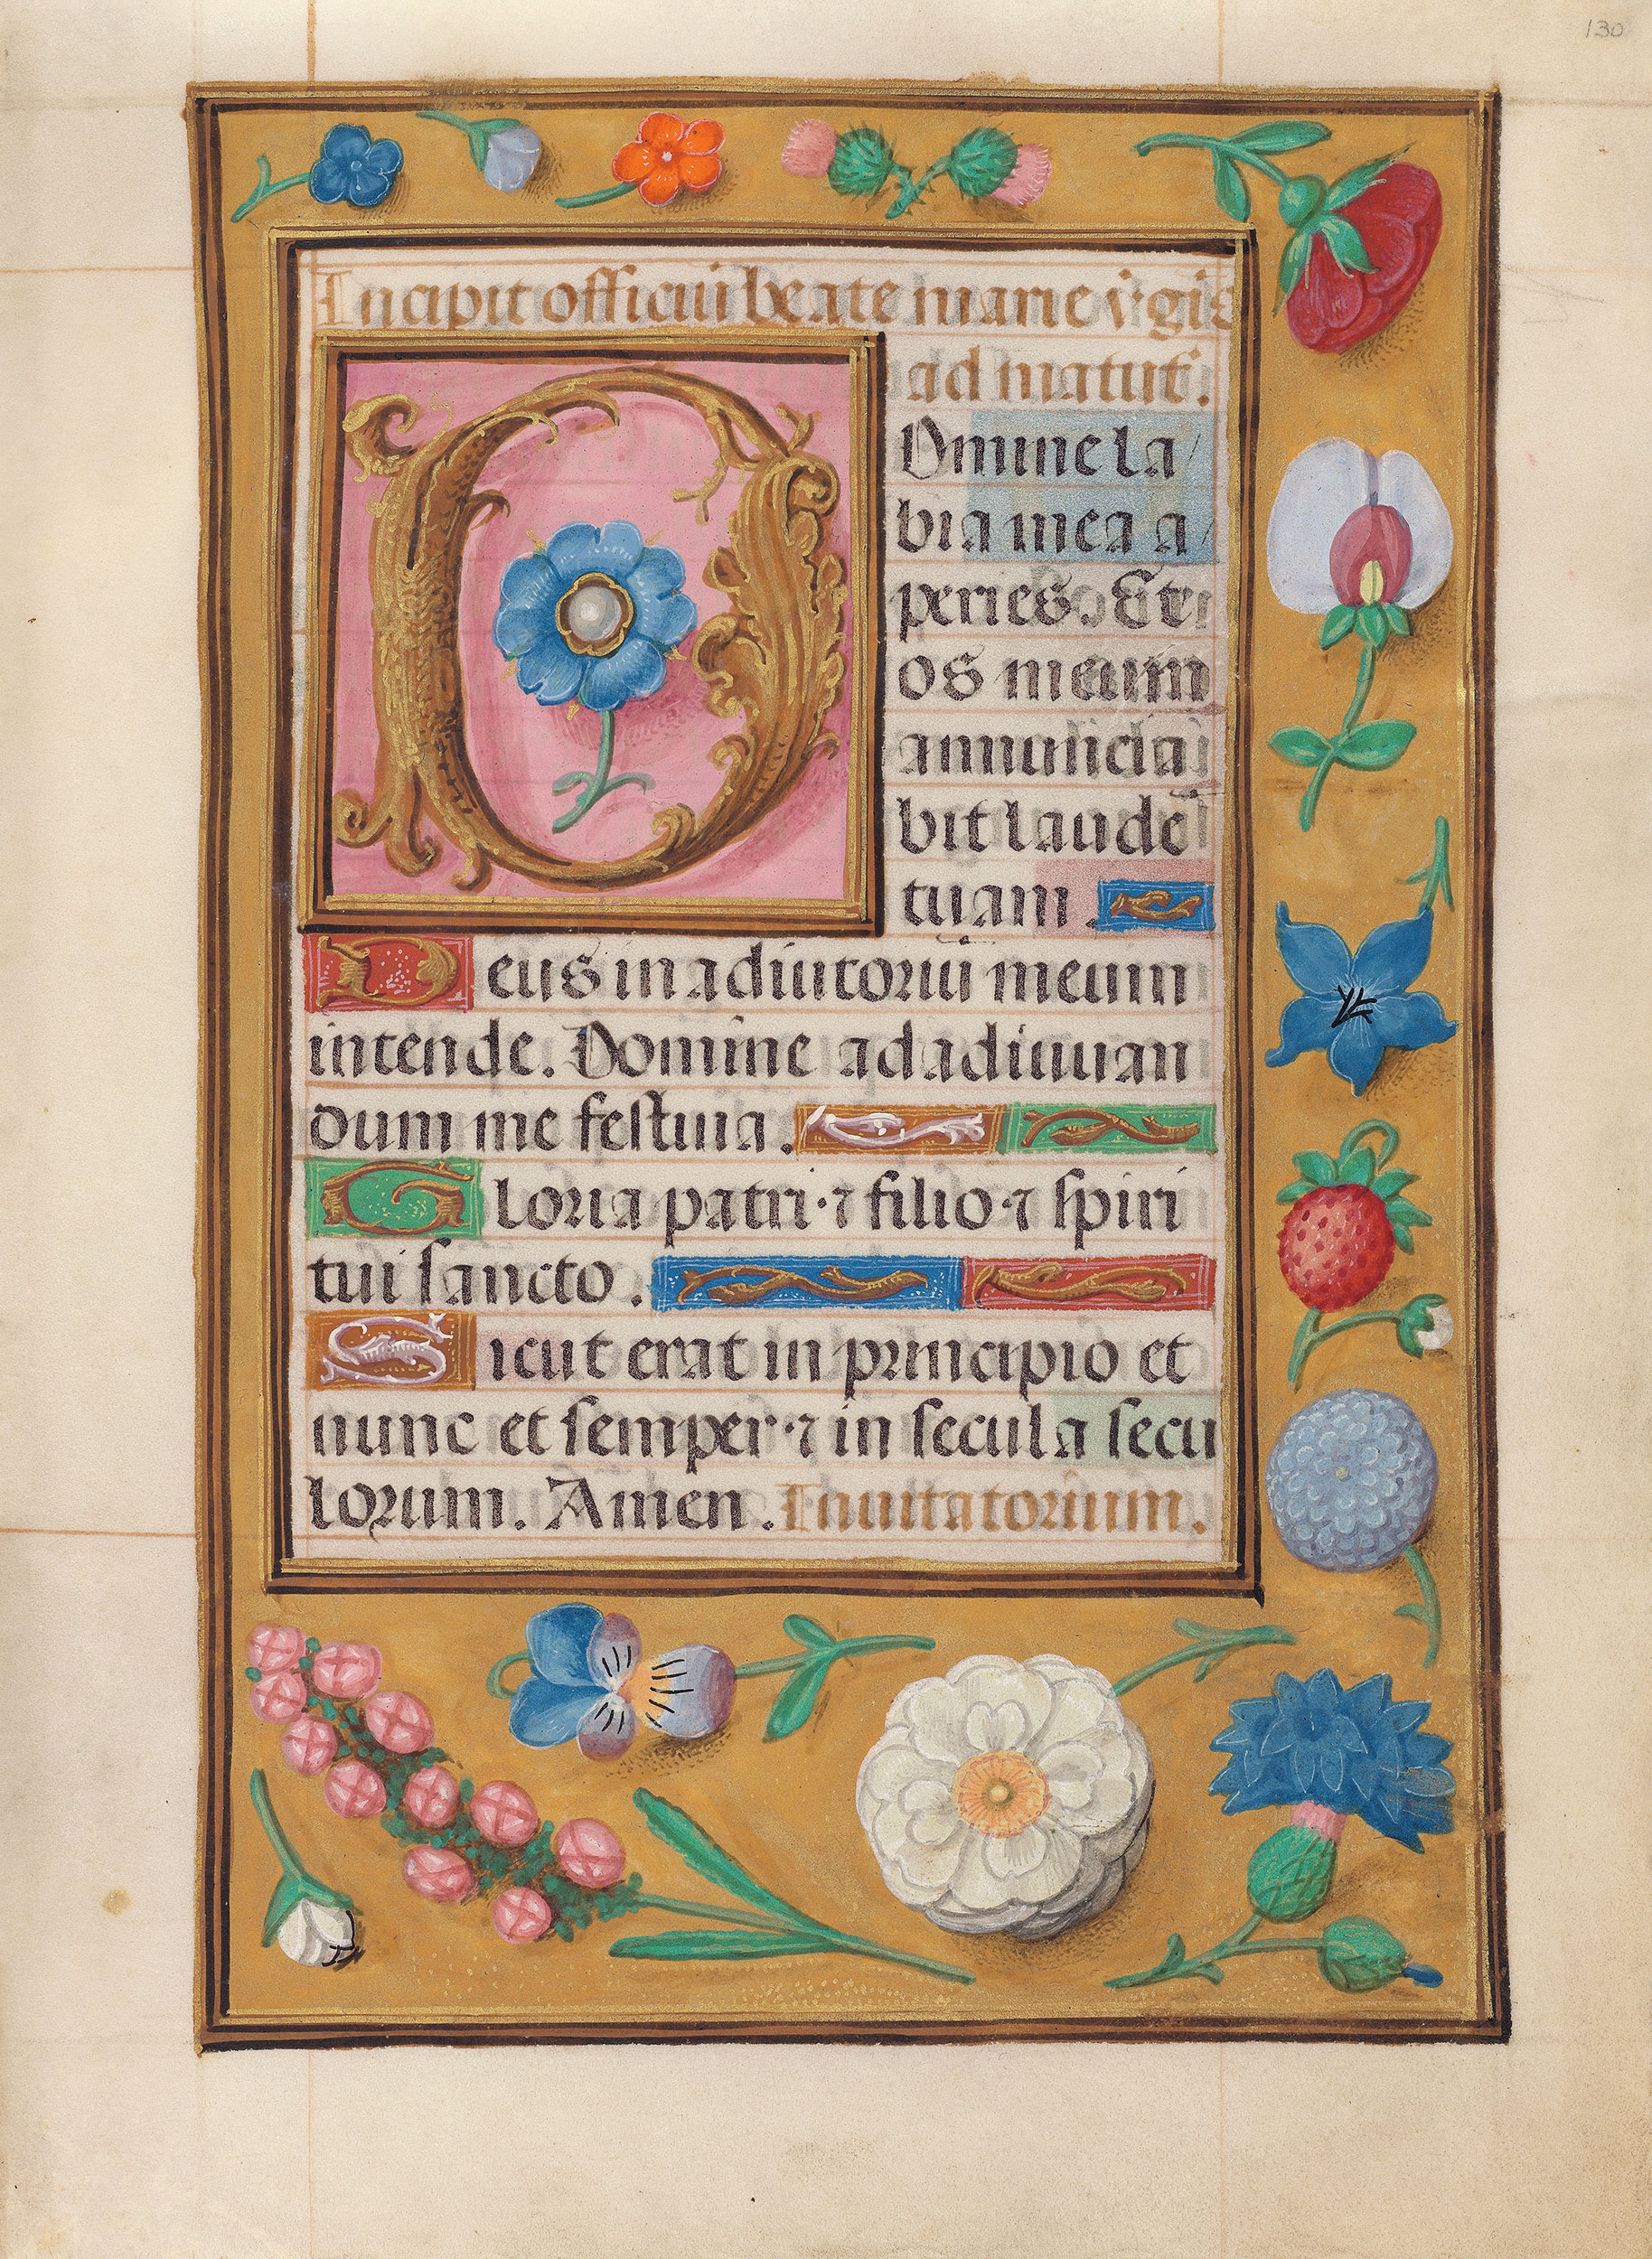 130
Incipit officiū beate marie v̇gīs
ad matut̄.
Domine la/
bia mea a/
peries. Et
os meum
annuncia
bit laudē
tuam.
Deus in adiutoriū meum
intende. Domine ad adiuuan
dum me festina.
Gloria patri·⁊ filio·⁊ spiri
tui sancto.
Sicut erat in principio et
nunc et semper·⁊ in secula secu
lorum. Amen. Inuitatorium.